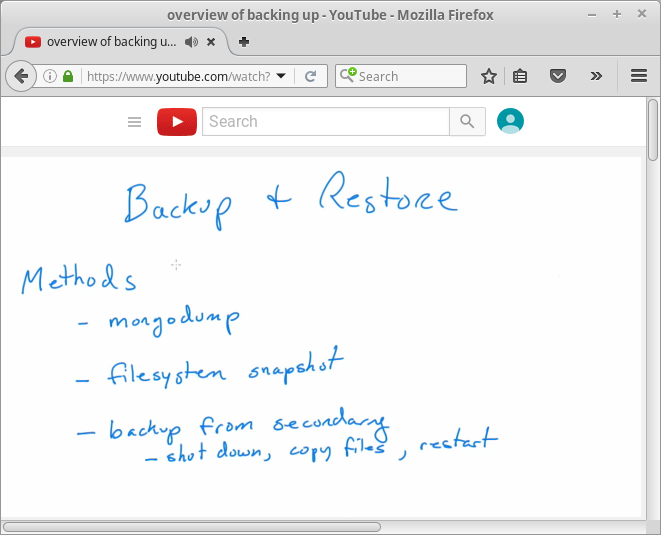 overview of backing up - YouTube - Mozilla Firefox
overview of backing u...
https://www.youtube.com/watch?
Search
Search
Backup + Restore
Methods
- mongodump
- filesystem snapshot
- backup from secondary
- shut down, copy files, restart